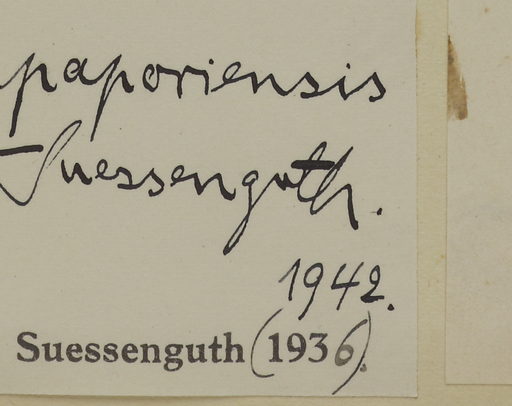 apaporiensis
Suessenguth.
1942.
Suessenguth (1936).